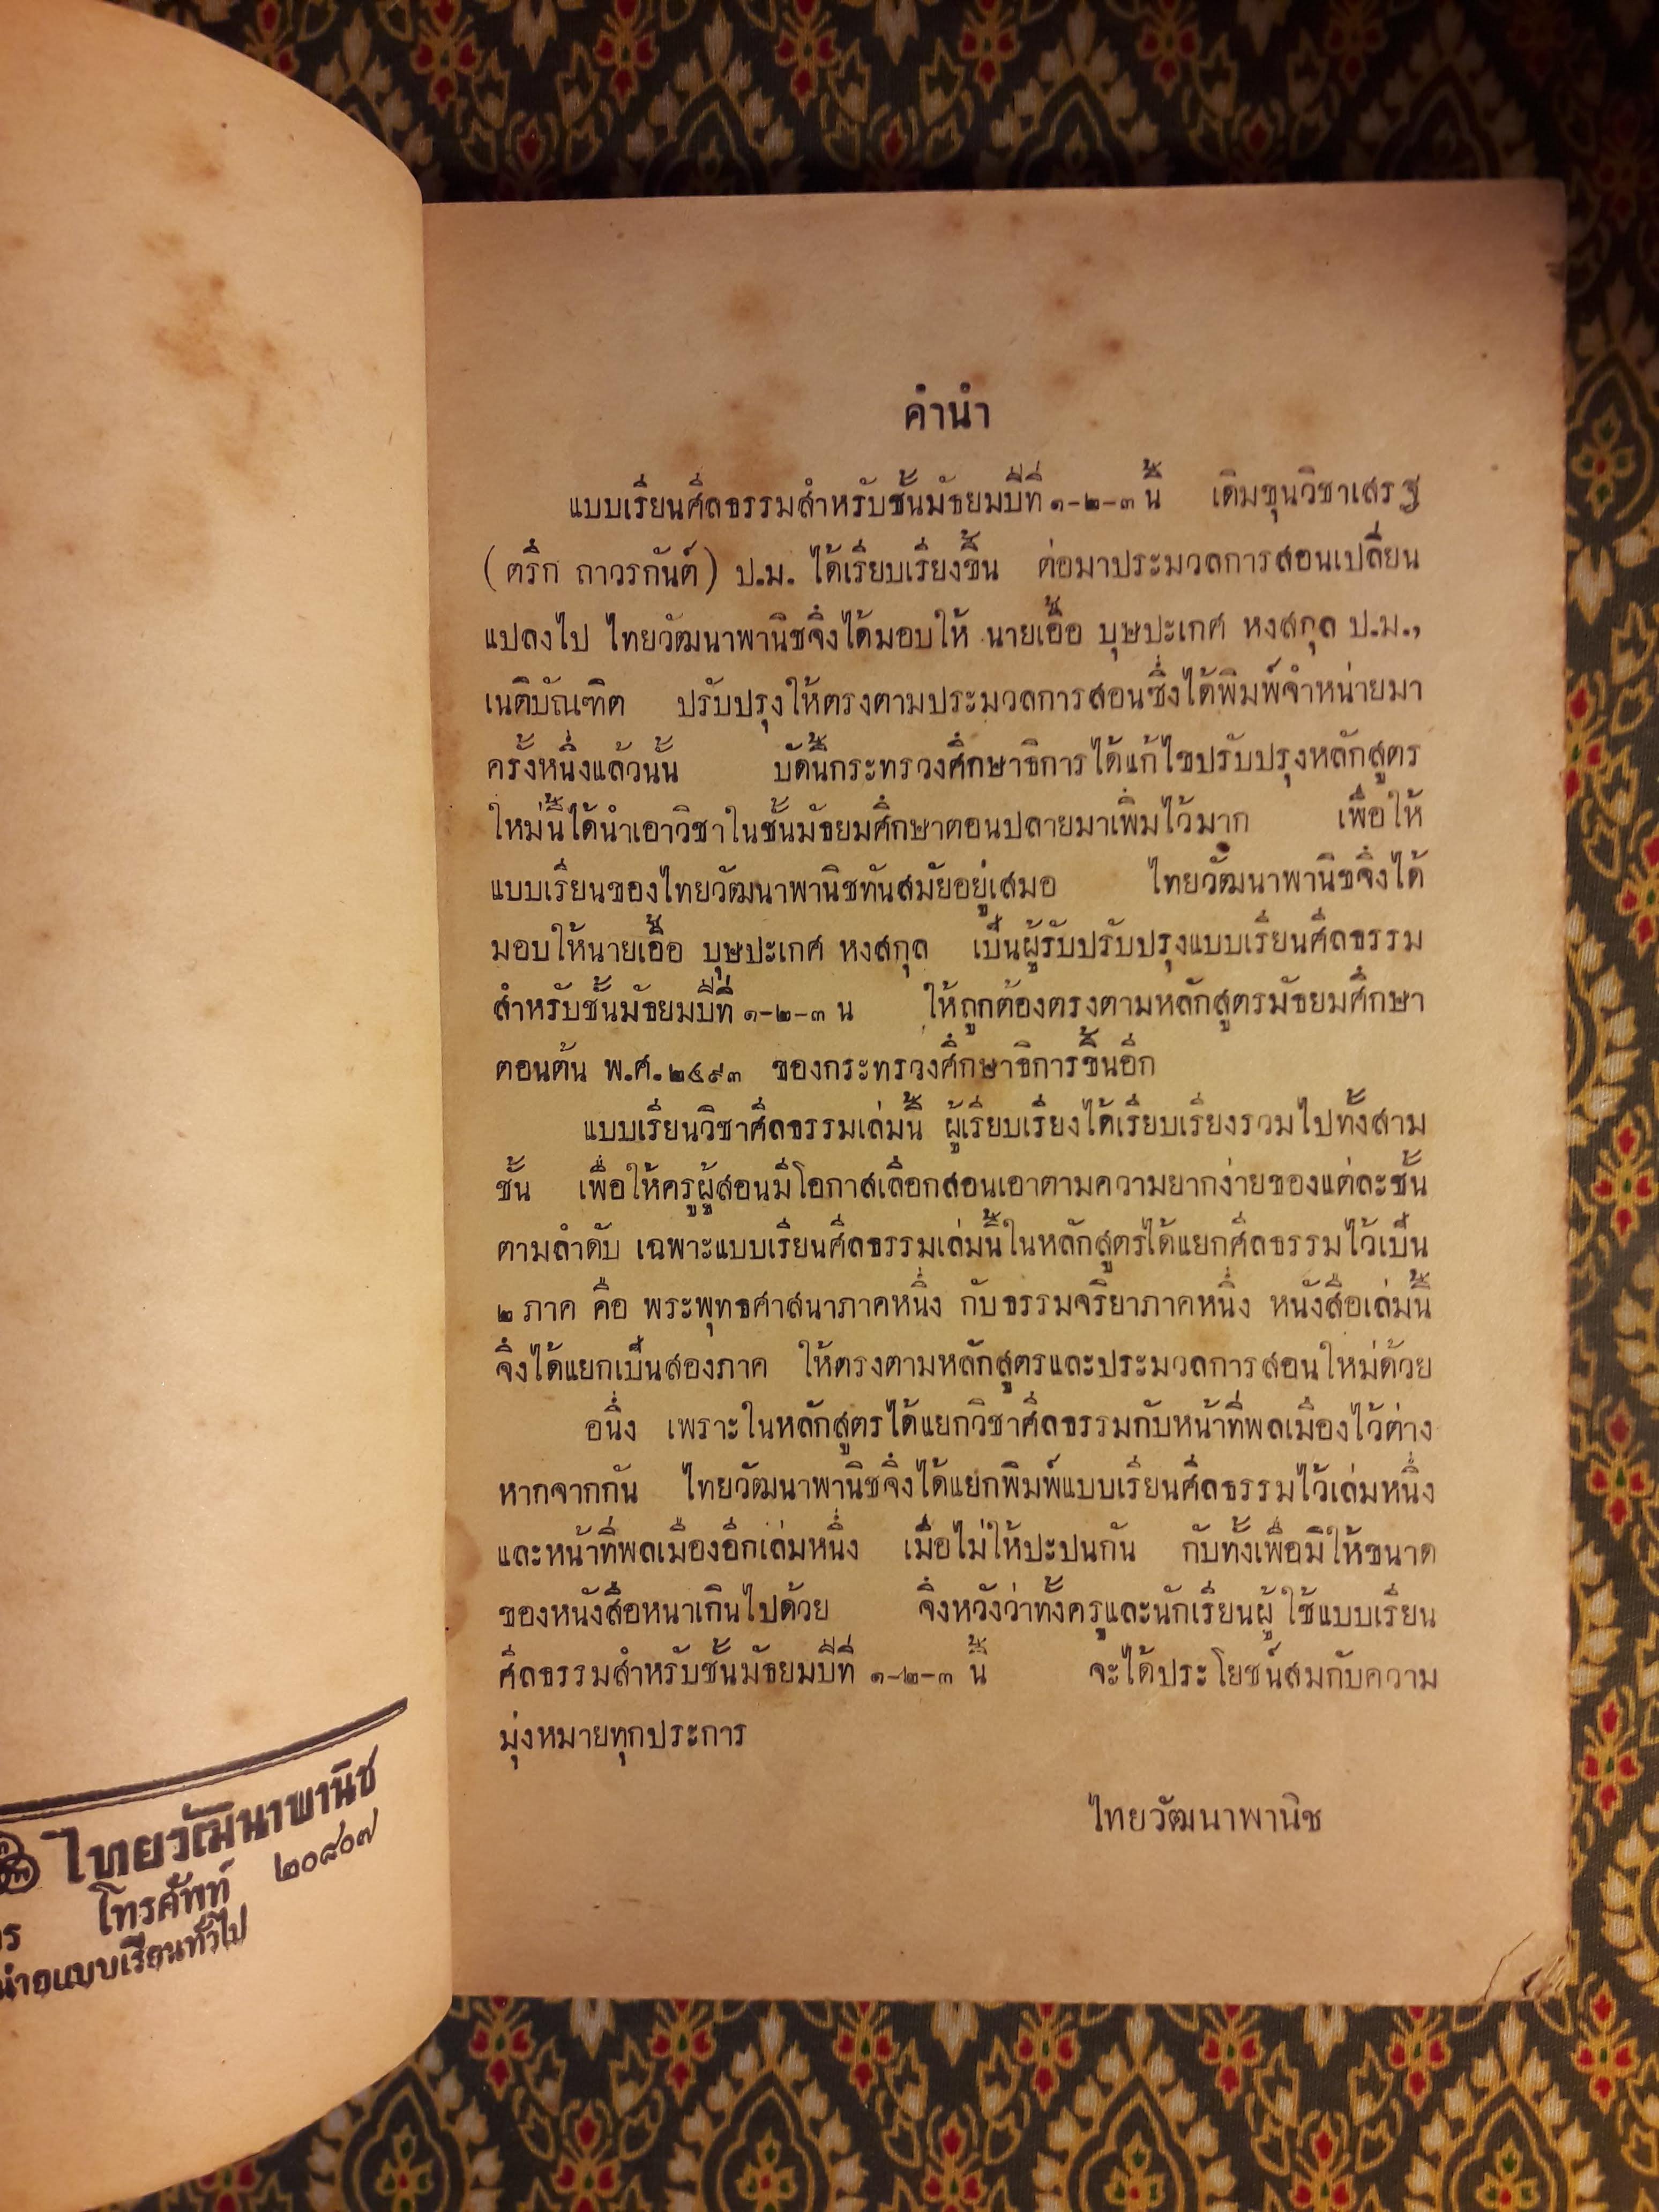 คำนำ
แบบเรียนศีลธรรมสำหรับชั้นมัธยมปีที่ ๑-๒-๓ นี้ เดิมขุนวิชาเสรฐ
(ตริ์ก ถาวรกันต์) ป.ม. ได้เรียบเรียงขึ้น ต่อมาประมวลการสอนเปลี่ยน
แปลงไป ไทยวัฒนาพานิชจึงได้มอบให้ นายเอื้อ บุษปะเกศ หงสกุล ป.ม.,
เนติบัณฑิต ปรับปรุงให้ตรงตามประมวลการสอนซึ่งได้พิมพ์จำหน่ายมา
ครั้งหนึ่งแล้วนั้น บัดนี้กระทรวงศึกษาธิการได้แก้ไขปรับปรุงหลักสูตร
ใหม่นี้ได้นำเอาวิชาในชั้นมัธยมศึกษาตอนปลายมาเพิ่มไว้มาก เพื่อให้
แบบเรียนของไทยวัฒนาพานิชทันสมัยอยู่เสมอ ไทยวัฒนาพานิชจึงได้
มอบให้นายเอื้อ บุษปะเกศ หงสกุล เป็นผู้รับปรับปรุงแบบเรียนศีลธรรม
สำหรับชั้นมัธยมปีที่ ๑-๒-๓ น ให้ถูกต้องตรงตามหลักสูตรมัธยมศึกษา
ตอนต้น พ.ศ.๒๔๙๓ ของกระทรวงศึกษาธิการขึ้นอีก
แบบเรียนวิชาศีลธรรมเล่มนี้ ผู้เรียบเรียงได้เรียบเรียงรวมไปทั้งสาม
ชั้น เพื่อให้ครูผู้สอนมีโอกาสเลือกสอนเอาตามความยากง่ายของแต่ละชั้น
ตามลำดับ เฉพาะแบบเรียนศีลธรรมเล่มนี้ในหลักสูตรได้แยกศีลธรรมไว้เป็น
๒ ภาค คือ พระพุทธศาสนาภาคหนึ่ง กับธรรมจริยาภาคหนึ่ง หนังสือเล่มนี้
จึงได้แยกเป็นสองภาค ให้ตรงตามหลักสูตรและประมวลการสอนใหม่ด้วย
อนึ่ง เพราะในหลักสูตรได้แยกวิชาศีลธรรมกับหน้าที่พลเมืองไว้ต่าง
หากจากกัน ไทยวัฒนาพานิชจึงได้แยกพิมพ์แบบเรียนศีลธรรมไว้เล่มหนึ่ง
และหน้าที่พลเมืองอีกเล่มหนึ่ง เมื่อไม่ให้ปะปนกัน กับทั้งเพื่อมิให้ขนาด
ของหนังสือหนาเกินไปด้วย จึงหวังว่าทั้งครูและนักเรียนผู้ใช้แบบเรียน
ศีลธรรมสำหรับชั้นมัธยมปีที่ ๑-๒-๓ นี้ จะได้ประโยชน์สมกับความ
มุ่งหมายทุกประการ
ไทยวัฒนาพานิช
ไทยวัฒนาพานิช
โทรศัพท์ ๒๐๘๐๗
แบบเรียนทั่วไป